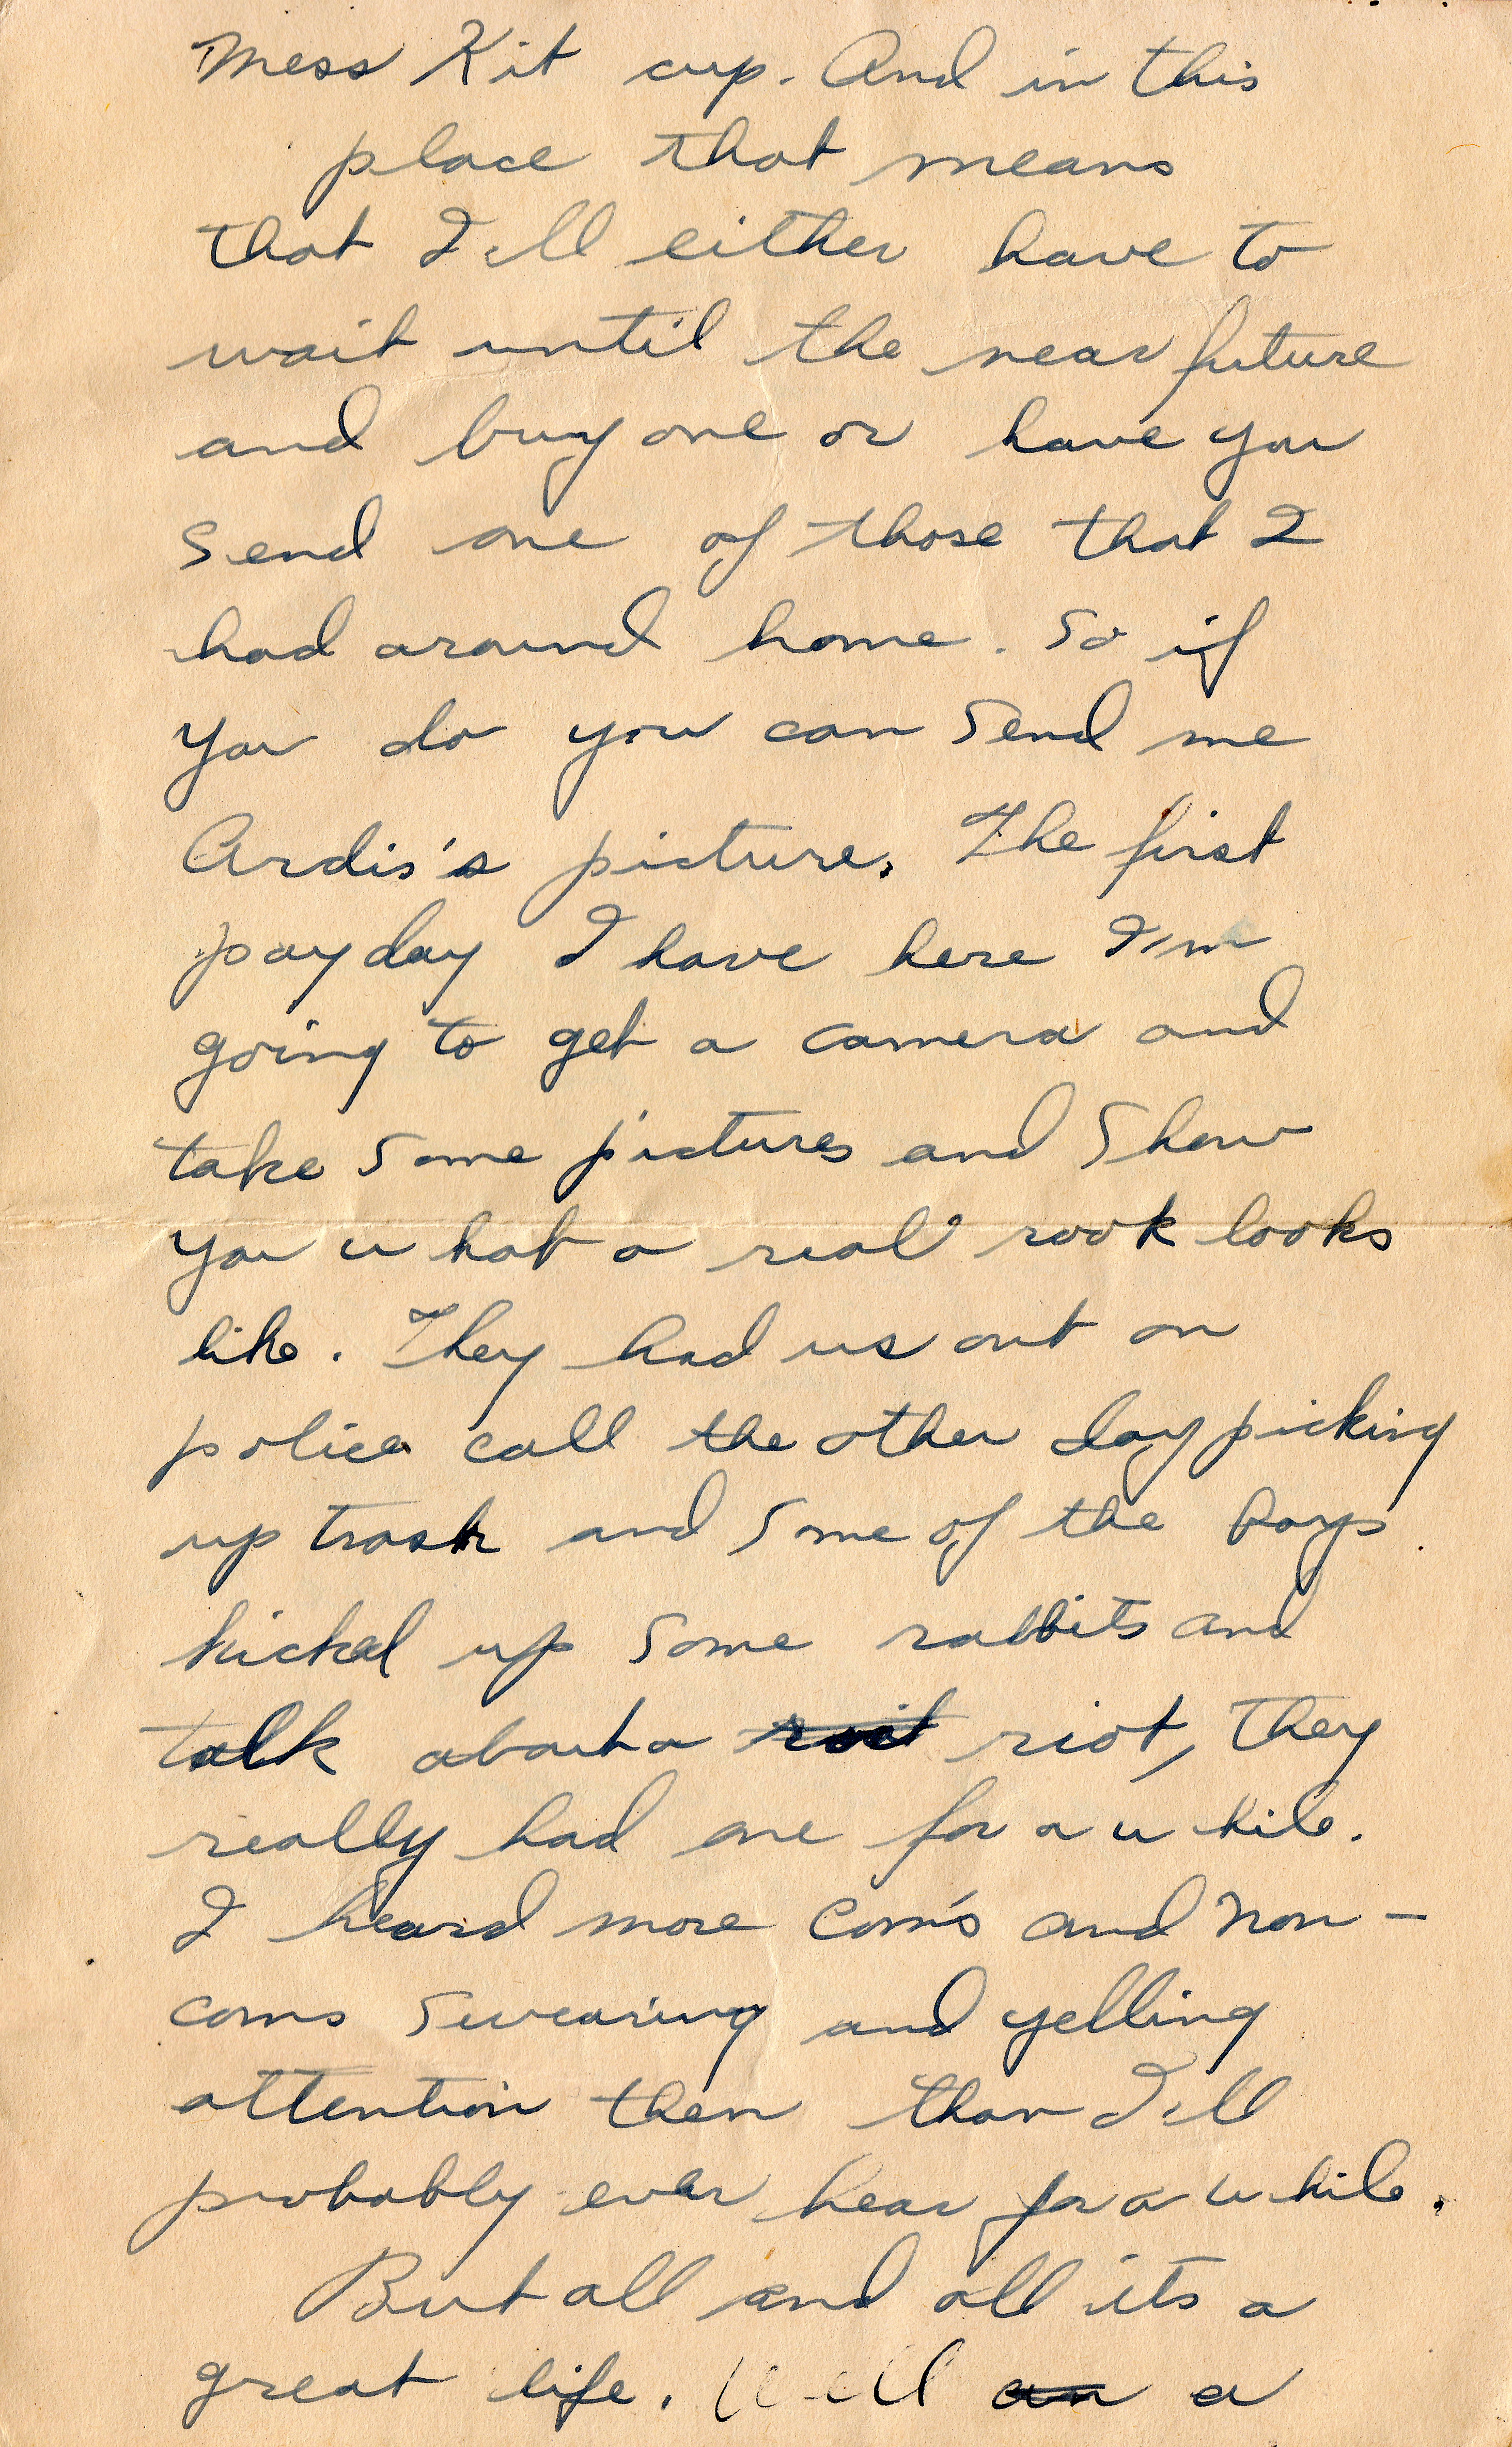 Mess Kit cup. And in this
place that means
that I'll either have to
wait until the near future
and buy one or have you
send one of those that I
had around home. So if
you do you can send me
Ardis's picture. The first
payday I have here I'm
going to get a camera and
take some pictures and show
you what a real rook looks
like. They had us out on
police call the other day picking
up trash and some of the boys
kicked up some rabbits and
talk about a roit riot, they
really had one for a while.
I heard more Com's and Non-
coms swearing and yelling
attention then than I'll
probably ever hear for a while.
But all and all its a
great life. Well an a